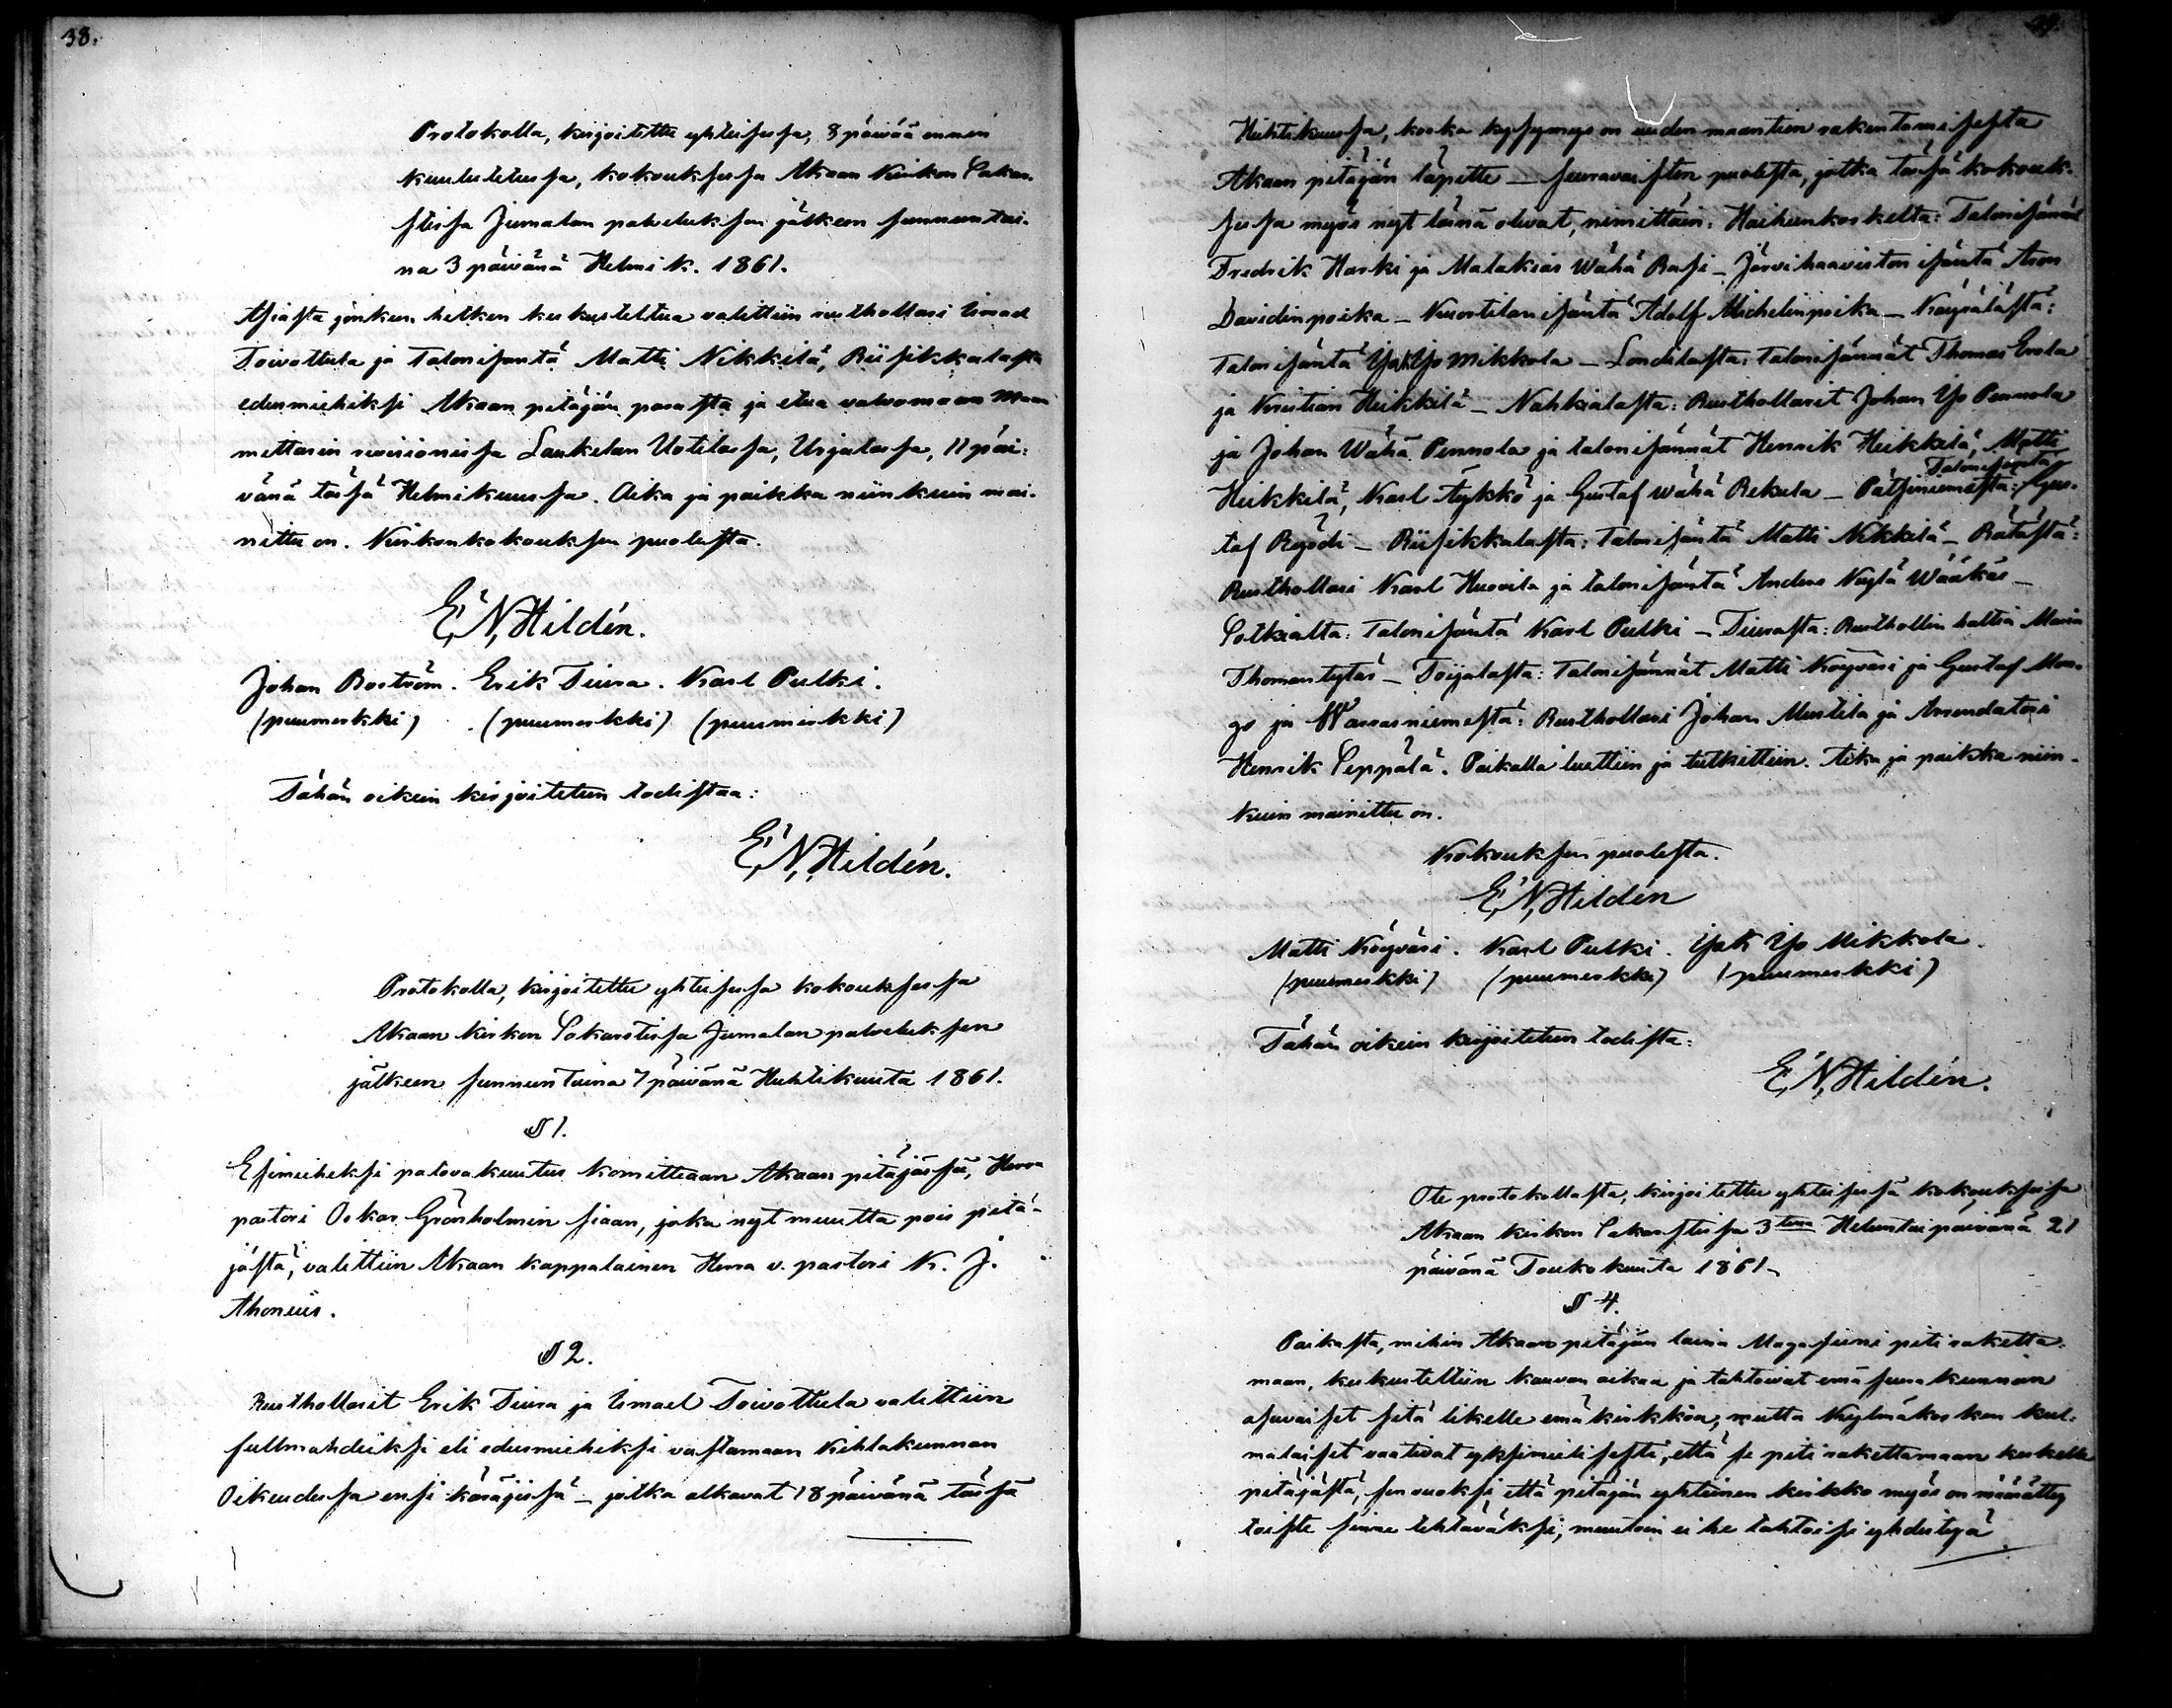 38.
Protokolla, kirjoitettu yhteisessa, 8 päivää ennen
kuulutetussa, kokouksessa Akaan Kirkon Sakar-
stissa Jumalan palveluksen jälkeen sunnuntai-
na 3 päivänä Helmik. 1861.
Asiasta jonkun hetken keskusteltua valittiin rusthollari Ismael
Toivottula ja Talonisäntä Matti Nikkilä, Riisikkalasta
edusmiehiksi Akaan pitäjän parasta ja etua valvomaan Maan
mittarin revisionissa Laukelan Uotilassa, Urjalassa, 11 päi-
vänä tässä Helmikuussa. Aika ja paikka niinkuin mai-
nittu on. Kirkonkokouksen puolesta.
E. N. Hildén.
Johan Boström. Erik Tiura. Karl Pulki.
(puumerkki) (puumerkki) (puumerkki)
Tähän oikein kirjoitetun todistaa:
E. N. Hildén.
Protokolla, kirjoitettu yhteisessa kokouksessa
Akaan kirkon Sakarstissa Jumalan palveluksen
jälkeen sunnuntaina 7 päivänä Huhtikuuta 1861.
§ 1.
Esimieheksi palovakuutus komitteaan Akaan pitäjässä, Herra
pastori Oskar Grönholmin siaan, joka nyt muutta pois pitä-
jästä, valittiin Akaan kappalainen Herra v. pastori K. J.
Ahonius.
§ 2.
Rusthollarit Erik Tiura ja Ismael Toivottula valittiin
fullmahdeiksi eli edusmiehiksi vastamaan Kihlakunnan
Oikeudessa ensi käräjissä – jotka alkavat 18 päivänä tässä
39.
Huhtikuussa, koska kysymys on uuden maantien rakentamisesta
Akaan pitäjän läpitte – seuravaisten puolesta, jotka tässä kokouk-
sessa myös nyt läsnä olivat, nimittäin: Haihunkoskelta: Talonisännät
Fredrik Harki ja Malakias Wähä Rasi – Järvihaaviston isäntä Aron
Davidinpoika – Kurvtilan isäntä Adolf Michelinpoika – Köyvälästä:
Talonisäntä Isak Yso Mikkola – Sondilasta: Talonisännät Thomas Erola
ja Kristian Heikkilä – Nahkialasta: Rusthollarit Johan Yso Pennola
ja Johan Wähä Pennola ja talonisännät Henrik Heikkilä, Matti
Heikkilä, Karl Äykkö ja Gustaf Wähä Rekula – Pätsiniemestä: Talonisäntä Gus-
taf Ryödi – Riisikkalasta: Talonisäntä Matti Nikkilä – Rätästä:
Rusthollari Karl Huovila ja talonisäntä Anders Knytä Wääkäs –
Sotkialta: Talonisäntä Karl Pulki – Tiurasta: Rusthollin haltia Maria
Thomantytär – Toijalasta: Talonisännät Matti Köyväri ja Gustaf Mon-
go ja Warrasniemestä: Rusthollari Johan Mustila ja Arrendatori
Henrik Seppälä. Paikalla luettiin ja tutkittiin. Aika ja paikka niin-
kuin mainittu on.
Kokouksen puolesta.
E. N. Hildén
Matti Köyväri. Karl Pulki. Isak Yso Mikkola.
(puumerkki) (puumerkki) (puumerkki)
Tähän oikein kirjoitetun todista:
E. N. Hildén.
Ote protokollasta, kirjoitettu yhteisessä kokouksessa
Akaan kirkon Sakarstissa 3tena Heluntai päivänä 21
päivänä Toukokuuta 1861–
§ 4.
Paikasta, mihin Akaan pitäjän laina Magasiini piti raketta-
maan, keskusteltiin kauvan aikaa ja tahtoivat emä seurakunnan
asuvaiset sitä likelle emäkirkkoa, mutta Kylmäkosken kul-
malaiset vaativat yksimielisesti, että se piti rakettamaan keskelle
pitäjästä, sen vuoksi, että pitäjän yhteinen kirkko myös on määrätty
toiste sinne tehtäväksi; muutoin ei he tahtoisi yhdistyä